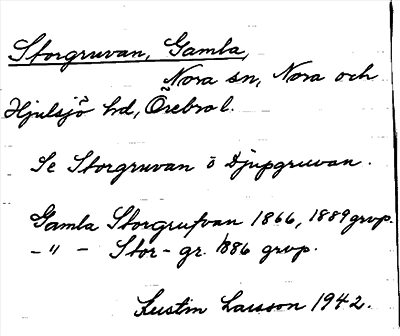 Storgruvan, Gamla,
Nora sn, Nora och
Hjulsjö hd, Örebro l.
Se Storgruvan o Djupgruvan.
Gamla Storgrufvan 1866, 1889 grvp.
–"– Stor-gr. 1886 grvp.
Kustin Larsson 1942.